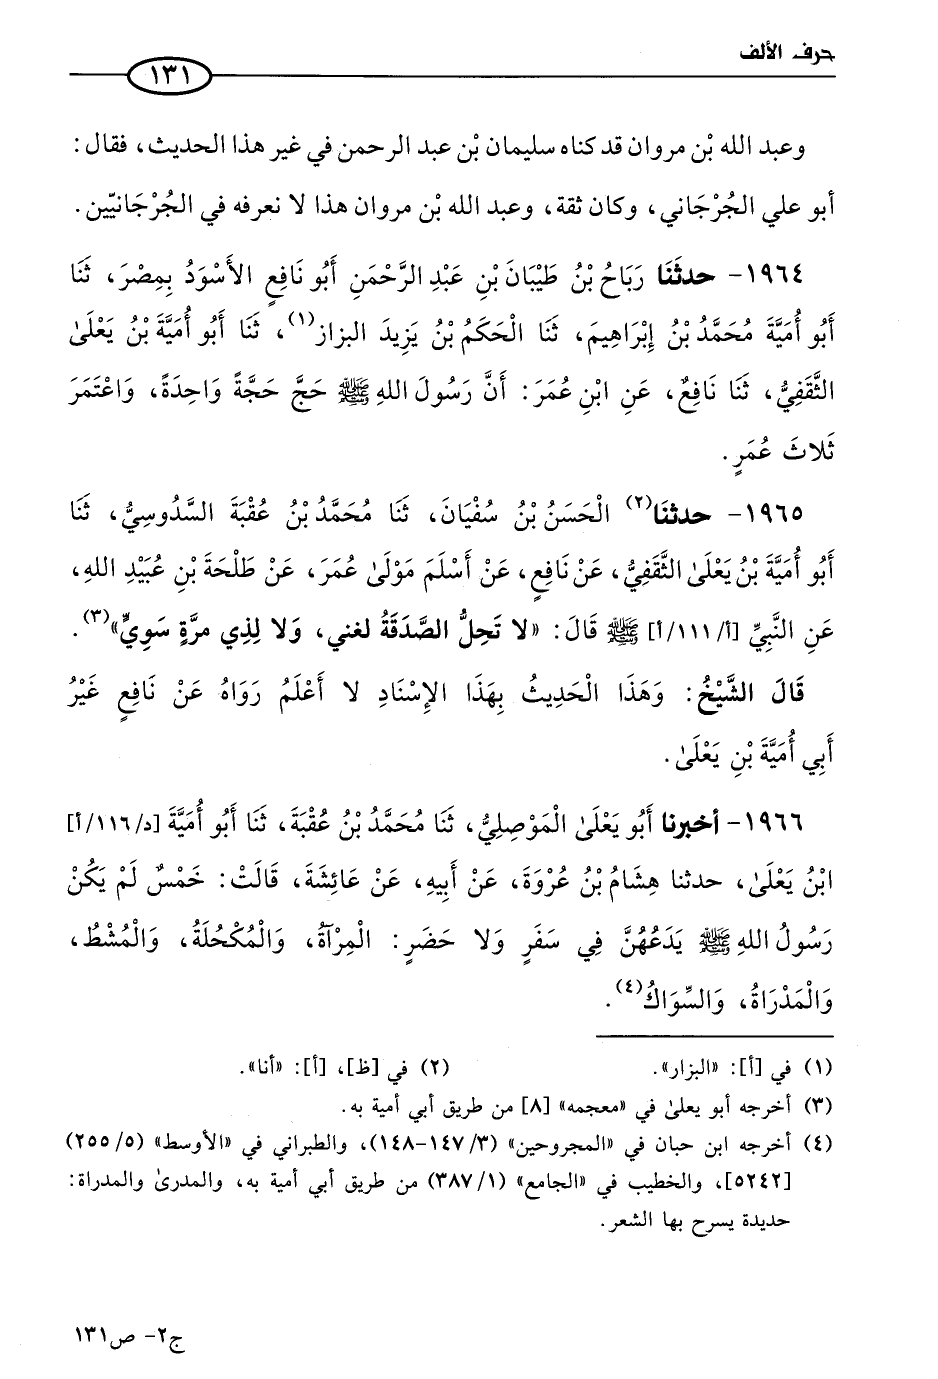 حرف الألف
١٣١
وعبد الله بْن مروان قد كناه سليمان بْن عبد الرحمن في غير هذا الحديث، فقال:
أبو علي الجُرْجَاني، وكان ثقة، وعبد الله بْن مروان هذا لا نعرفه في الجُرْجَانيّين.
١٩٦٤- حدثَنَا رَبَاحُ بْنُ طَيْبَانَ بْنِ عَبْدِ الرَّحْمَنِ أَبُو نَافِعٍ الأَسْوَدُ بِمِصْرَ، ثَنَا
أَبُو أُمَيَّةَ مُحَمَّدُ بْنُ إِبْرَاهِيمَ، ثَنَا الْحَكَمُ بْنُ يَزِيدَ البزاز(١)، ثَنَا أَبُو أُمَيَّةَ بْنُ يَعْلَىٰ
الثَّقَفِيُّ، ثَنَا نَافِعٌ، عَنِ ابْنِ عُمَرَ: أَنَّ رَسُولَ اللهِ ﷺ حَجَّ حَجَّةً وَاحِدَةً، وَاعْتَمَرَ
ثَلاثَ عُمَرٍ.
١٩٦٥- حدثنَا(٢) الْحَسَنُ بْنُ سُفْيَانَ، ثَنَا مُحَمَّدُ بْنُ عُقْبَةَ السَّدُوسِيُّ، ثَنَا
أَبُو أُمَيَّةَ بْنُ يَعْلَىٰ الثَّقَفِيُّ، عَنْ نَافِعٍ، عَنْ أَسْلَمَ مَوْلَىٰ عُمَرَ، عَنْ طَلْحَةَ بْنِ عُبَيْدِ اللهِ،
عَنِ النَّبِيِّ [أ/١١١/أ] ﷺ قَالَ: «لا تَحِلُّ الصَّدَقَةُ لغني، وَلا لِذِي مرَّةٍ سَوِيٍّ»(٣).
قَالَ الشَّيْخُ: وَهَذَا الْحَدِيثُ بِهَذَا الإِسْنَادِ لا أَعْلَمُ رَوَاهُ عَنْ نَافِعٍ غَيْرُ
أَبِي أُمَيَّةَ بْنِ يَعْلَىٰ.
١٩٦٦- أخبرنا أَبُو يَعْلَىٰ الْمَوْصِلِيُّ، ثَنَا مُحَمَّدُ بْنُ عُقْبَةَ، ثَنَا أَبُو أُمَيَّةَ [د/١١٦/أ]
ابْنُ يَعْلَىٰ، حدثنا هِشَامُ بْنُ عُرْوَةَ، عَنْ أَبِيهِ، عَنْ عَائِشَةَ، قَالَتْ: خَمْسٌ لَمْ يَكُنْ
رَسُولُ اللهِ ﷺ يَدَعُهُنَّ فِي سَفَرٍ وَلا حَضَرٍ: الْمِرْآةُ، وَالْمُكْحُلَةُ، وَالْمُشْطُ،
وَالْمَدْرَاةُ، وَالسِّوَاكُ(٤).
(١) في [أ]: «البزار». (٢) في [ظ]، [أ]: «أنا».
(٣) أخرجه أبو يعلىٰ في «معجمه» [٨] من طريق أبي أمية به.
(٤) أخرجه ابن حبان في «المجروحين» (٣/١٤٧-١٤٨)، والطبراني في «الأوسط» (٥/٢٥٥)
[٥٢٤٢]، والخطيب في «الجامع» (١/٣٨٧) من طريق أبي أمية به، والمدرىٰ والمدراة:
حديدة يسرح بها الشعر.
ج٢- ص١٣١